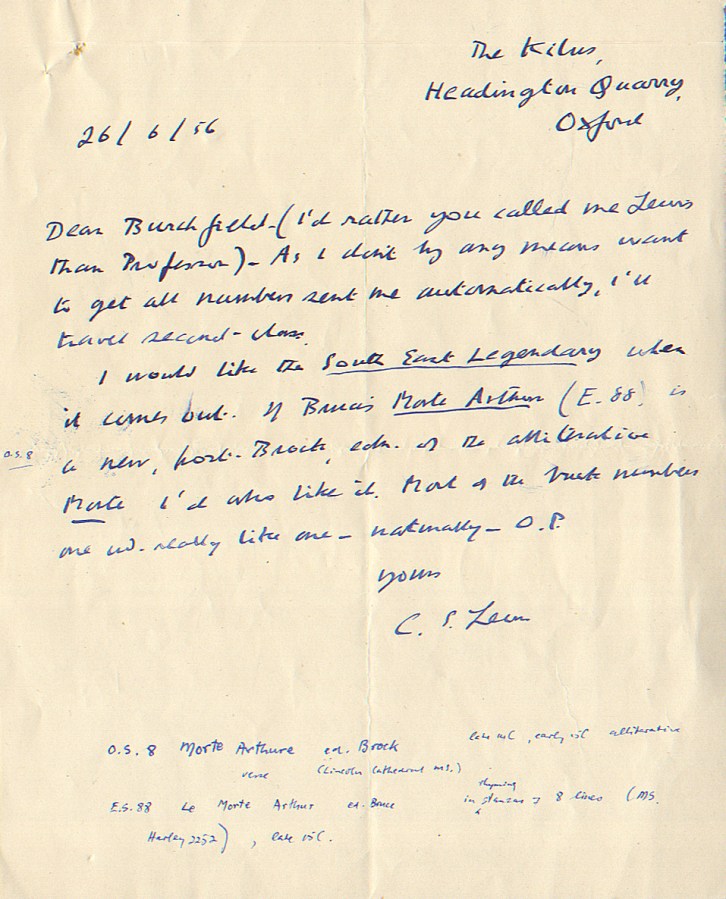 The Kilns,
Headington Quarry,
Oxford
26/6/56
Dear Burchfield-(I'd rather you called me Lewis
than Professor)- As I don't by any means want
to get all numbers sent me automatically, I'll
travel second-class.
I would like the South East Legendary when
it comes out. If Bruce's Morte Arthur (E.88) is
O.S. 8
a new, post-Brock, edn. of the alliterative
Morte I'd also like it. Most of the back numbers
one wd. really like are - naturally - O.P.
Yours
C. S. Lewis
O.S. 8 Morte Arthure ed. Brock late 14C, early 15C alliterative
verse (Lincoln Cathedral MS.)
rhyming
E.S. 88 Le Morte Arthur ed. Bruce in stanzas of 8 lines (MS.
Harley 2252), late 15C.